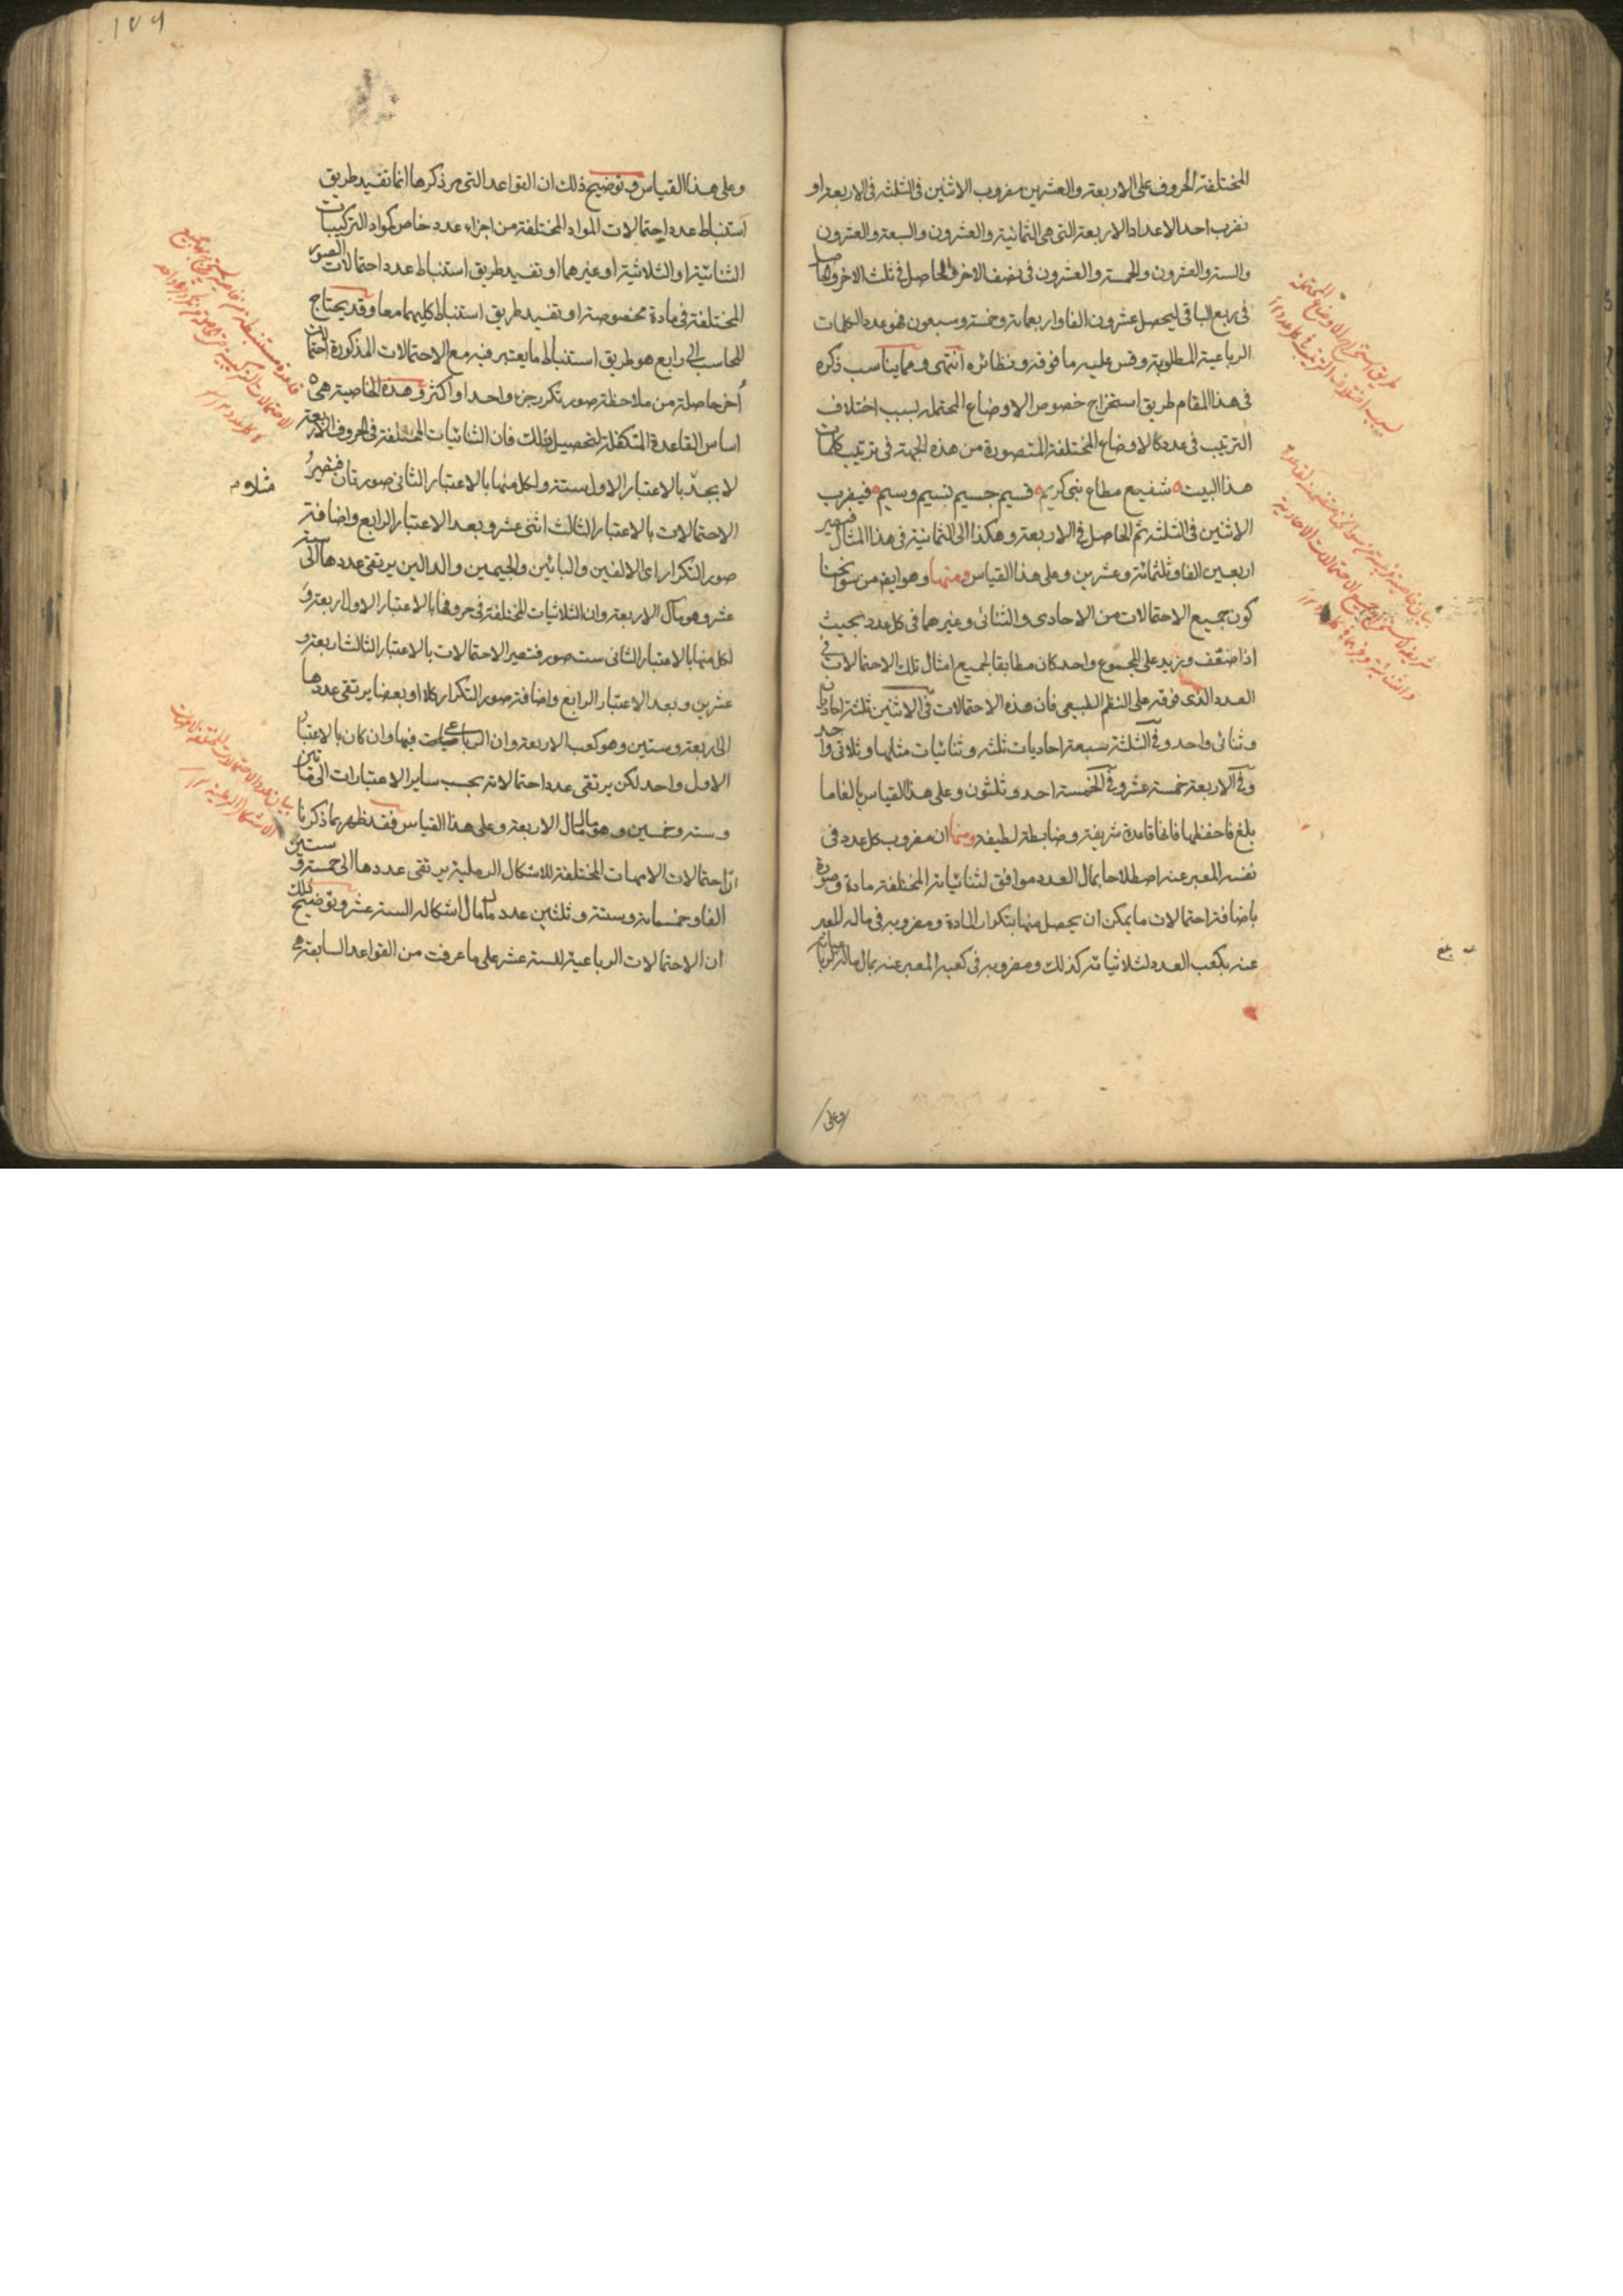 المختلفة الحروف على الاربعة والعشرين مضروب الاثنين فى الثلثة فى الاربعة او
نضرب احد الاعداد الاربعة التى هى الثمانية والعشرون والسبعة والعشرون
والستة والعشرون والخمسة والعشرون فى نصف الاخر والحاصل فى ثلث الاخر والحاصل
فى ربع الباقى ليحصل عشرون الفا واربعمائة وخمسة وسبعون فهو عدد الكلمات
الرباعية المطلوبة وقس عليه ما فوقه ونظائره انتهى ومما يناسب ذكره
فى هذا المقام طريق استخراج خصوص الاوضاع المحتملة بسبب اختلاف
الترتيب فى عدد كالاوضاع المختلفة المتصورة من هذه الجهة فى ترتيب كلمات
هذا البيت شفيع مطاع نبى كريم قسيم جسيم نسيم وسيم فيضرب
الاثنين فى الثلثة ثم الحاصل فى الاربعة وهكذا الى الثمانية فى هذا المثال فيصير
اربعين الفا وثلثمائة وعشرين وعلى هذا القياس ومنها وهو ايضا من سوانحنا
كون جميع الاحتمالات من الاحادى والثنائى وغيرهما فى كل عدد بحيث
اذا ضعف وزيد على المجموع واحد كان مطابقا لجميع امثال تلك الاحتمالات فى
العدد الذى فوقه على النظم الطبيعى فان هذه الاحتمالات فى الاثنين ثلثة احاديان
وثنائى واحد وفى الثلثة سبعة احاديات ثلثة وثنائيات مثلها وثلاثى واحد
وفى الاربعة خمسة عشر وفى الخمسة احد وثلثون وعلى هذا القياس بالغا ما
بلغ فاحفظها فانها قاعدة شريفة وضابطة لطيفة ومنها ان مضروب كل عدد فى
نفسه المعبر عنه اصطلاحا بمال العدد موافق لثنائياته المختلفة مادة وصورة
باضافة احتمالات ما يمكن ان يحصل منها بتكرار المادة ومضروبه فى ماله المعبر
عنه بكعب العدد لثلاثياته كذلك ومضروبه فى كعبه المعبر عنه بمال ماله لرباعياته
وعلى
طريق استخراج الاوضاع المحتملة
بسبب اختلاف الترتيب فى كل عدد
بلغ
وعلى هذا القياس وتوضيح ذلك ان القواعد التى مر ذكرها انما تفيد طريق
استنباط عدد احتمالات المواد المختلفة من اجزاء عدد خاص كمواد التركيبات
الثنائية او الثلاثية او غيرهما او تفيد طريق استنباط عدد احتمالات الصور
المختلفة فى مادة مخصوصة او تفيد طريق استنباط كليهما معا وقد يحتاج
المحاسب الى رابع هو طريق استنباط ما يعتبر فيه مع الاحتمالات المذكورة احتمالات
أخر حاصلة من ملاحظة صور تكرر جزء واحد او اكثر وهذه الخاصية هى
اساس القاعدة المتكفلة لتحصيل ذلك فان الثنائيات المختلفة فى الحروف الاربعة
لا بجد بالاعتبار الاول ستة ولكل منها بالاعتبار الثانى صورتان فيصير
الاحتمالات بالاعتبار الثالث اثنى عشر وبعد الاعتبار الرابع واضافة
صور التكرار اى الالفين والبائين والجيمين والدالين يرتقى عددها الى ستة
عشر وهو مال الاربعة وان الثلاثيات المختلفة فى حروفها بالاعتبار الاول اربعة و
لكل منها بالاعتبار الثانى ست صور فتصير الاحتمالات بالاعتبار الثالث اربعة و
عشرين وبعد الاعتبار الرابع واضافة صور التكرار كلا او بعضا يرتقى عددها
الى اربعة وستين وهو كعب الاربعة وان الرباعيات فيها وان كان بالاعتبار
الاول واحد لكن يرتقى عدد احتمالاته بحسب ساير الاعتبارات الى مأتين
وستة وخمسين وهو مال مال الاربعة وعلى هذا القياس فقد ظهر مما ذكرنا
ان احتمالات الامهات المختلفة للاشكال الرملية يرتقى عددها الى خمسة وستين
الفا وخمسمائة وستة وثلثين عدد مال مال اشكاله الستة عشر وتوضيح ذلك
ان الاحتمالات الرباعية للستة عشر على ما عرفت من القواعد السابقة